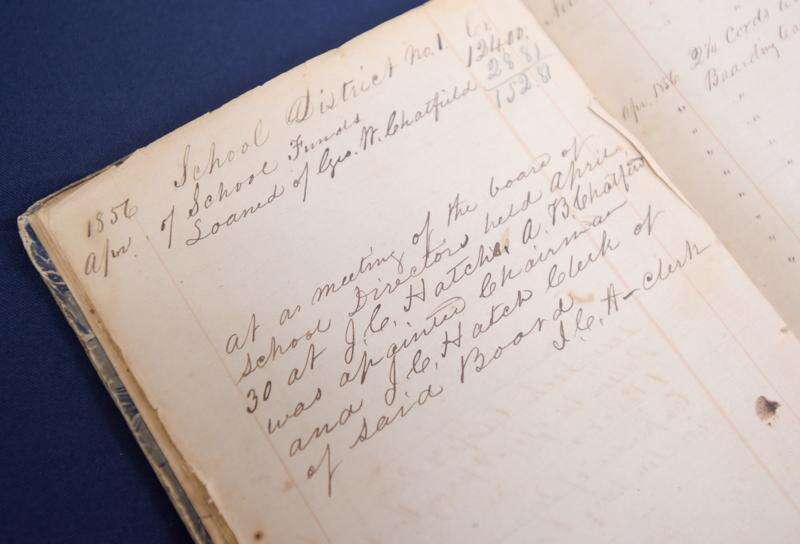 School District No. 1. Cr.
1856
Apr. of School Funds 124.00.
Loaned of Geo. W. Chatfield 28.81
152.81
at a meeting of the board of
School Directors held April
30 at J. C. Hatchs, A. B. Chatfield
was apointed Chairman
and J. C. Hatch Clerk of
of said Board
J. C. H- clerk
Apr. 1856 2¼ Cords
" Boarding
"
"
"
"
"
"